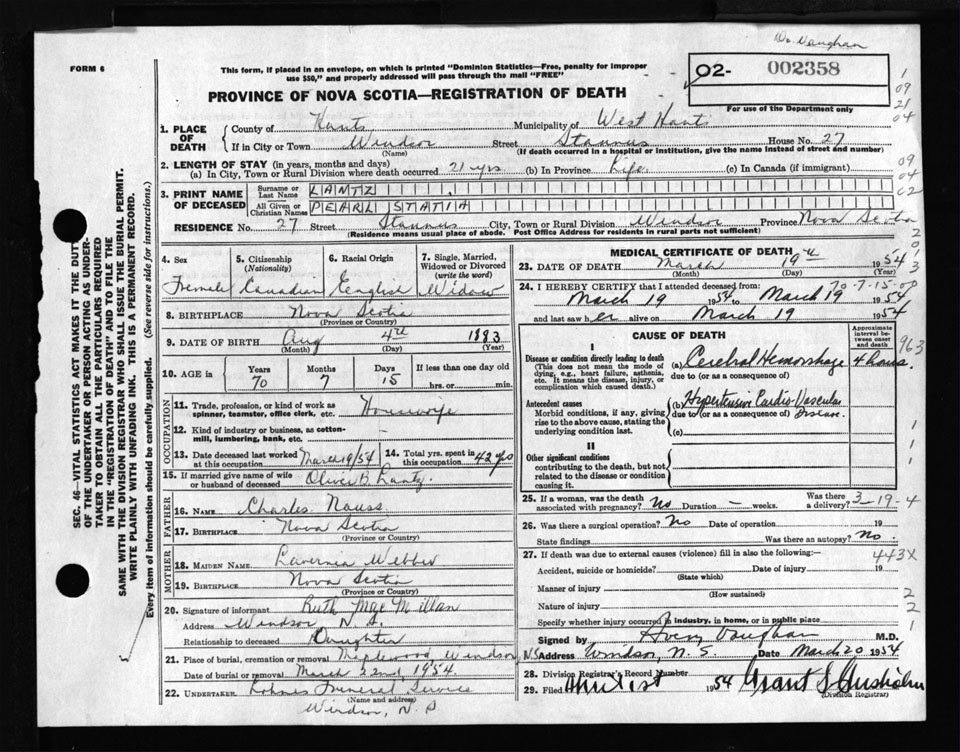 Dr. Vaughan
FORM 6
This form, if placed in an envelope, on which is printed "Dominion Statistics—Free, penalty for improper
use $50," and properly addressed will pass through the mail "FREE"
02- 002358
For use of the Department only
PROVINCE OF NOVA SCOTIA—REGISTRATION OF DEATH
1. PLACE OF DEATH
County of Hants Municipality of West Hants
If in City or Town Windsor Street Stannus House No. 27
(Name) (If death occurred in a hospital or institution, give the name instead of street and number)
2. LENGTH OF STAY (in years, months and days)
(a) In City, Town or Rural Division where death occurred 21 yrs (b) In Province Life (c) In Canada (if immigrant)
3. PRINT NAME OF DECEASED
Surname or Last Name LANTZ
All Given or Christian Names PEARL STATIA
RESIDENCE No. 27 Street Stannus City, Town or Rural Division Windsor Province Nova Scotia
(Residence means usual place of abode. Post Office Address for residents in rural parts not sufficient)
4. Sex
Female
5. Citizenship (Nationality)
Canadian
6. Racial Origin
English
7. Single, Married, Widowed or Divorced (write the word)
Widow
8. BIRTHPLACE Nova Scotia
(Province or Country)
9. DATE OF BIRTH Aug 4th 1883
(Month) (Day) (Year)
10. AGE in
Years 70
Months 7
Days 15
If less than one day old
hrs. or min.
OCCUPATION
11. Trade, profession, or kind of work as spinner, teamster, office clerk, etc. Housewife
12. Kind of industry or business, as cotton-mill, lumbering, bank, etc.
13. Date deceased last worked at this occupation March 19/54
14. Total yrs. spent in this occupation 42 yrs
15. If married give name of wife or husband of deceased Oliver B. Lantz
FATHER
16. NAME Charles Nauss
17. BIRTHPLACE Nova Scotia
(Province or Country)
MOTHER
18. MAIDEN NAME Lavernia Webber
19. BIRTHPLACE Nova Scotia
(Province or Country)
20. Signature of informant Ruth MacMillan
Address Windsor N.S.
Relationship to deceased Daughter
21. Place of burial, cremation or removal Maplewood Windsor, N.S
Date of burial or removal March 22nd 1954.
22. UNDERTAKER Funeral Service
(Name and address)
Windsor, N.S
MEDICAL CERTIFICATE OF DEATH
23. DATE OF DEATH March 19th 1954
(Month) (Day) (Year)
24. I HEREBY CERTIFY that I attended deceased from: 70-7-15-00
March 19 1954 to March 19 1954
and last saw her alive on March 19 1954
CAUSE OF DEATH
Approximate interval between onset and death
I
Disease or condition directly leading to death
(This does not mean the mode of dying, e.g., heart failure, asthenia, etc. It means the disease, injury, or complication which caused death.)
(a) Cerebral Hemorrhage 4 hours
due to (or as a consequence of)
Antecedent causes
Morbid conditions, if any, giving rise to the above cause, stating the underlying condition last.
(b) Hypertensive Cardio-Vascular
due to (or as a consequence of) Disease.
(c)
II
Other significant conditions
contributing to the death, but not related to the disease or condition causing it.
25. If a woman, was the death associated with pregnancy? No Duration — weeks. Was there a delivery? 3-19-4
26. Was there a surgical operation? No Date of operation 19
State findings Was there an autopsy? No.
27. If death was due to external causes (violence) fill in also the following:— 443X
Accident, suicide or homicide? Date of injury 19
(State which)
Manner of injury
(How sustained)
Nature of injury
Specify whether injury occurred in industry, in home, or in public place
Signed by Avery Vaughan M.D.
Address Windsor, N.S. Date March 20 1954
28. Division Registrar's Record Number
29. Filed 1st 1954
(Division Registrar)
SEC. 46—VITAL STATISTICS ACT MAKES IT THE DUTY
OF THE UNDERTAKER OR PERSON ACTING AS UNDER-
TAKER TO OBTAIN ALL THE PARTICULARS REQUIRED
IN THE "REGISTRATION OF DEATH" AND TO FILE THE
SAME WITH THE DIVISION REGISTRAR WHO SHALL ISSUE THE BURIAL PERMIT.
WRITE PLAINLY WITH UNFADING INK. THIS IS A PERMANENT RECORD.
Every item of information should be carefully supplied. (See reverse side for instructions.)
1
09
21
04
09
04
02
2
0
1
3
963
1
1
1
2
2
1